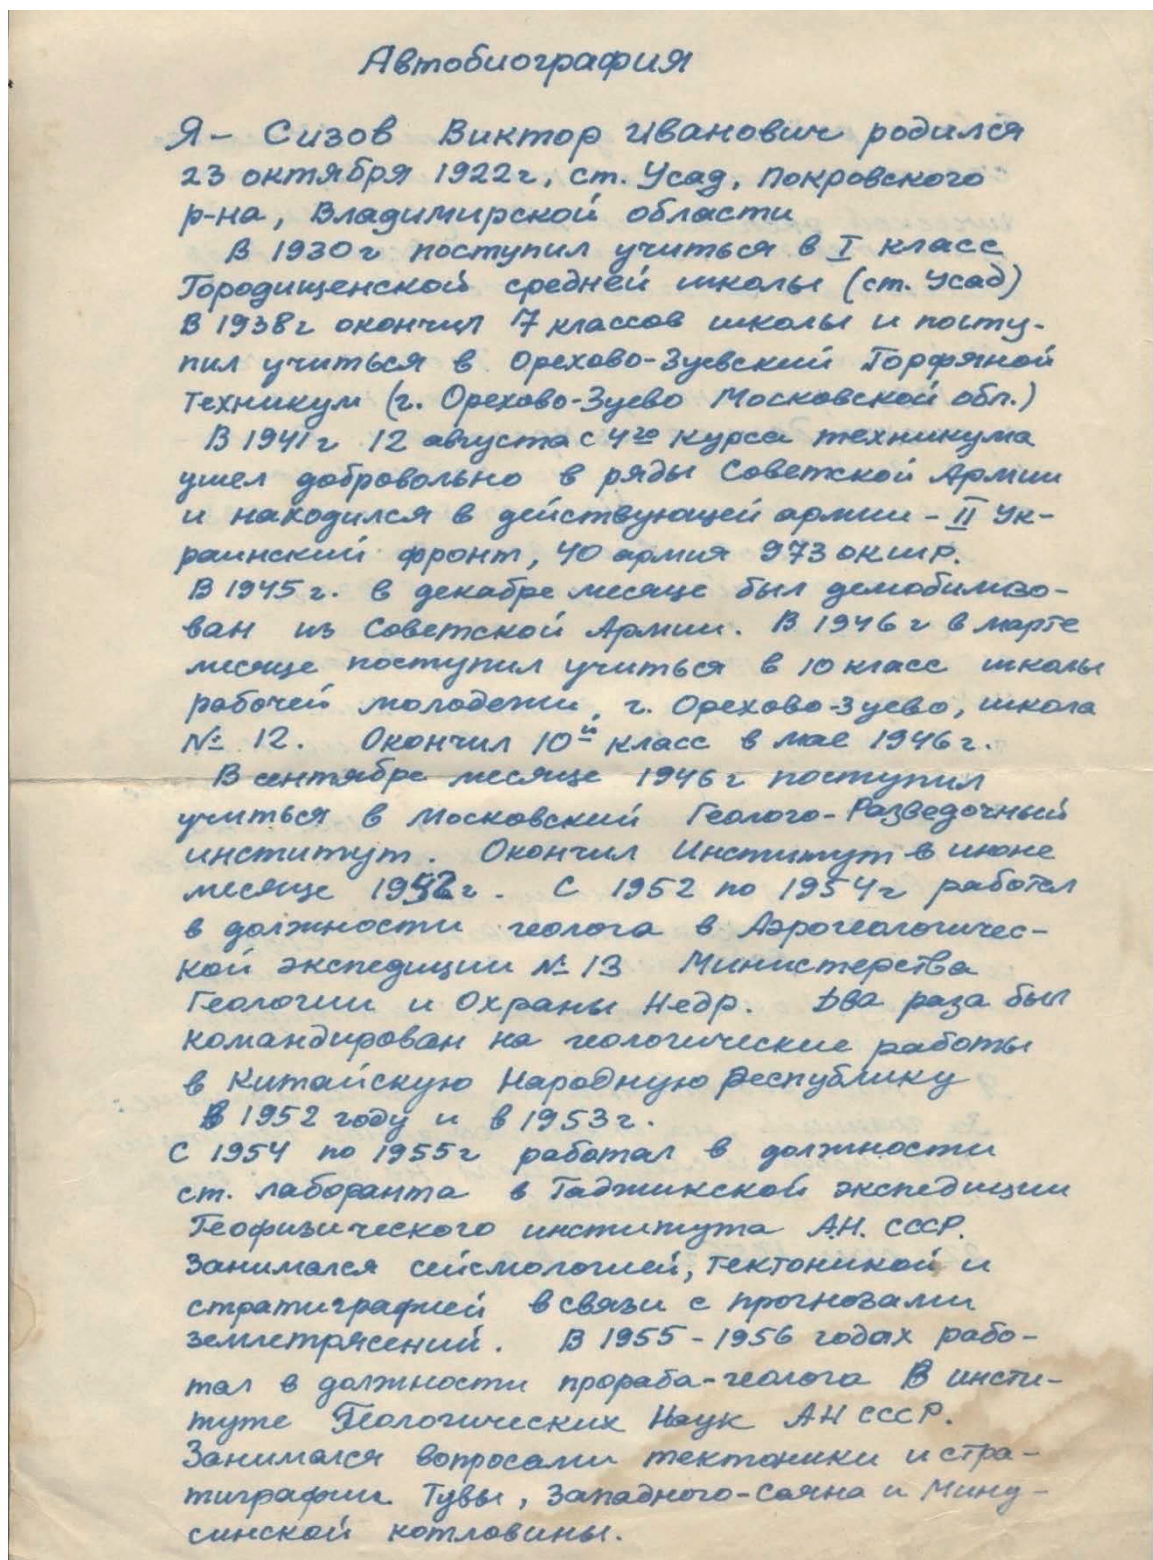 Автобиография
Я – Сизов Виктор Иванович родился
23 октября 1922 г, ст. Усад, Покровского
р-на, Владимирской области
В 1930 г поступил учиться в I класс
Городищенской средней школы (ст. Усад)
В 1938 г окончил 7 классов школы и посту-
пил учиться в Орехово-Зуевский Торфяной
Техникум (г. Орехово-Зуево Московской обл.)
В 1941 г 12 августа с 4го курса техникума
ушел добровольно в ряды Советской Армии
и находился в действующей армии – II Ук-
раинский фронт, 40 армия 973 окшр.
В 1945 г. в декабре месяце был демобилизо-
ван из Советской Армии. В 1946 г в марте
месяце поступил учиться в 10 класс школы
рабочей молодежи, г. Орехово-Зуево, школа
№ 12. Окончил 10й класс в мае 1946 г.
В сентябре месяце 1946 г поступил
учиться в Московский Геолого-Разведочный
институт. Окончил Институт в июне
месяце 1952 г. С 1952 по 1954 г работал
в должности геолога в Аэрогеологичес-
кой экспедиции № 13 Министерства
Геологии и Охраны Недр. Два раза был
командирован на геологические работы
в Китайскую Народную Республику
в 1952 году и в 1953 г.
С 1954 по 1955 г работал в должности
ст. лаборанта в Таджикской экспедиции
Геофизического института А.Н. СССР.
Занимался сейсмологией, тектоникой и
стратиграфией в связи с прогнозами
землетрясений. В 1955 – 1956 годах рабо-
тал в должности прораба-геолога В инсти-
туте Геологических Наук АН СССР.
Занимался вопросами тектоники и стра-
тиграфии Тувы, Западного-Саяна и Мину-
синской котловины.